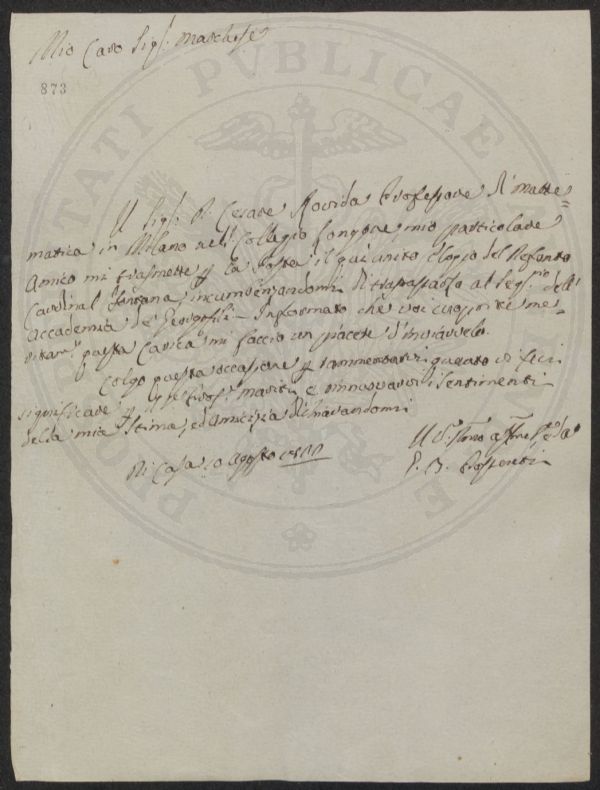 Mio Caro Sig.r Marchese
873
Il Sig.r D. Cesare Rovida Professore di Matte=
matica in Milano nell' Collegio Longone mio particolare
Amico mi trasmette p la Posta il quì unito Elogio del Defunto
Cardinal Fontana, incumbenzandomi di trapassarlo al Seg.o dell'
Accademia de' Georgofili. Informato che voi cuoprite me=
ritam.e questa Carica mi faccio un piacere d'inviarvelo.
Colgo questa occasione p rammentarvi quanto vi feci
significare p il Prof.e e rinnuovarvi i sentimenti
della mia Stima, ed Amicizia dichiarandomi
Di Casa 10 Agosto
Il V.stro